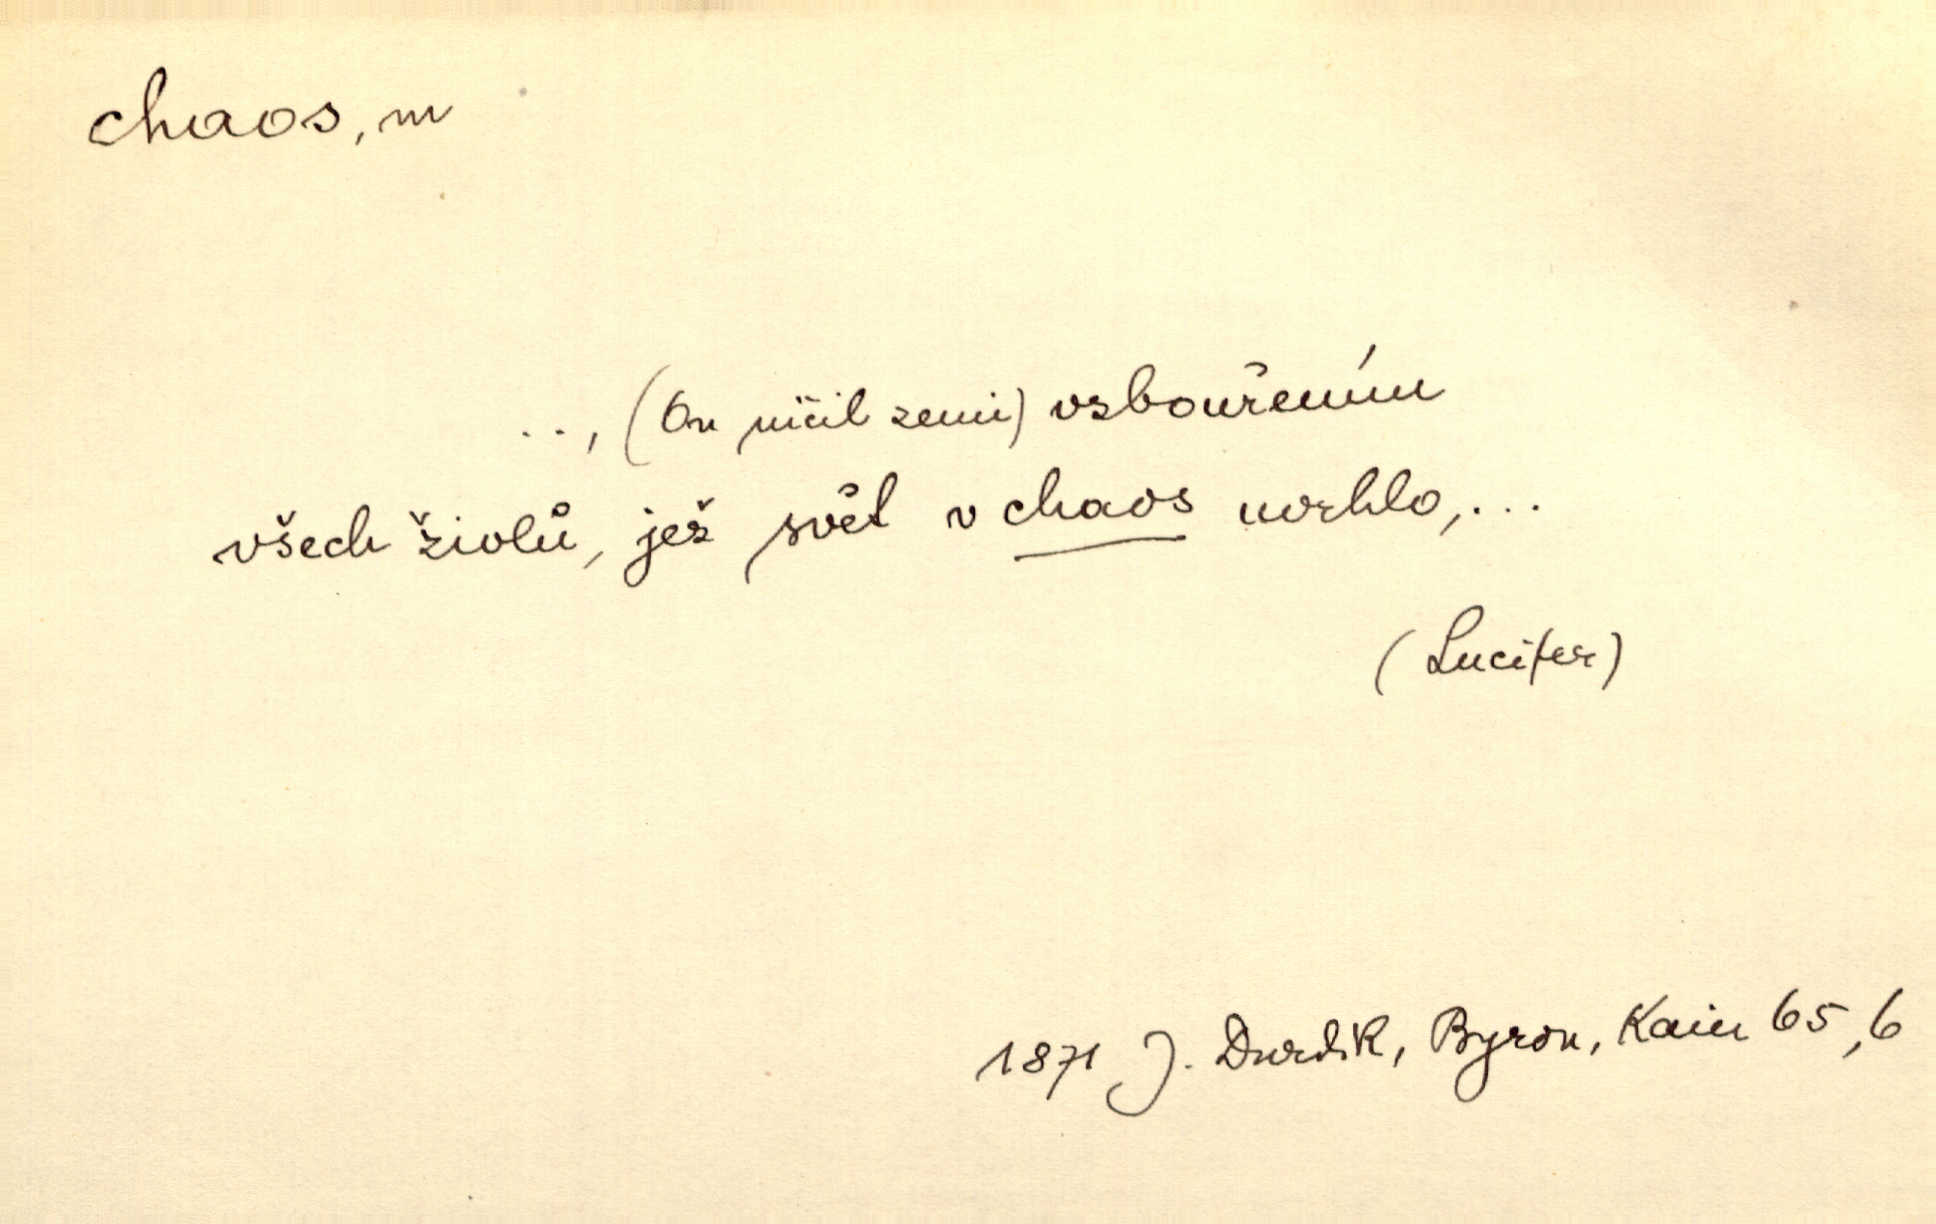 chaos, m
.., (On ničil zemi) vzbouřením
všech živlů, jež svět v chaos uvrhlo,...
(Lucifer)
1871 J. Durdík, Byron, Kain 65,6